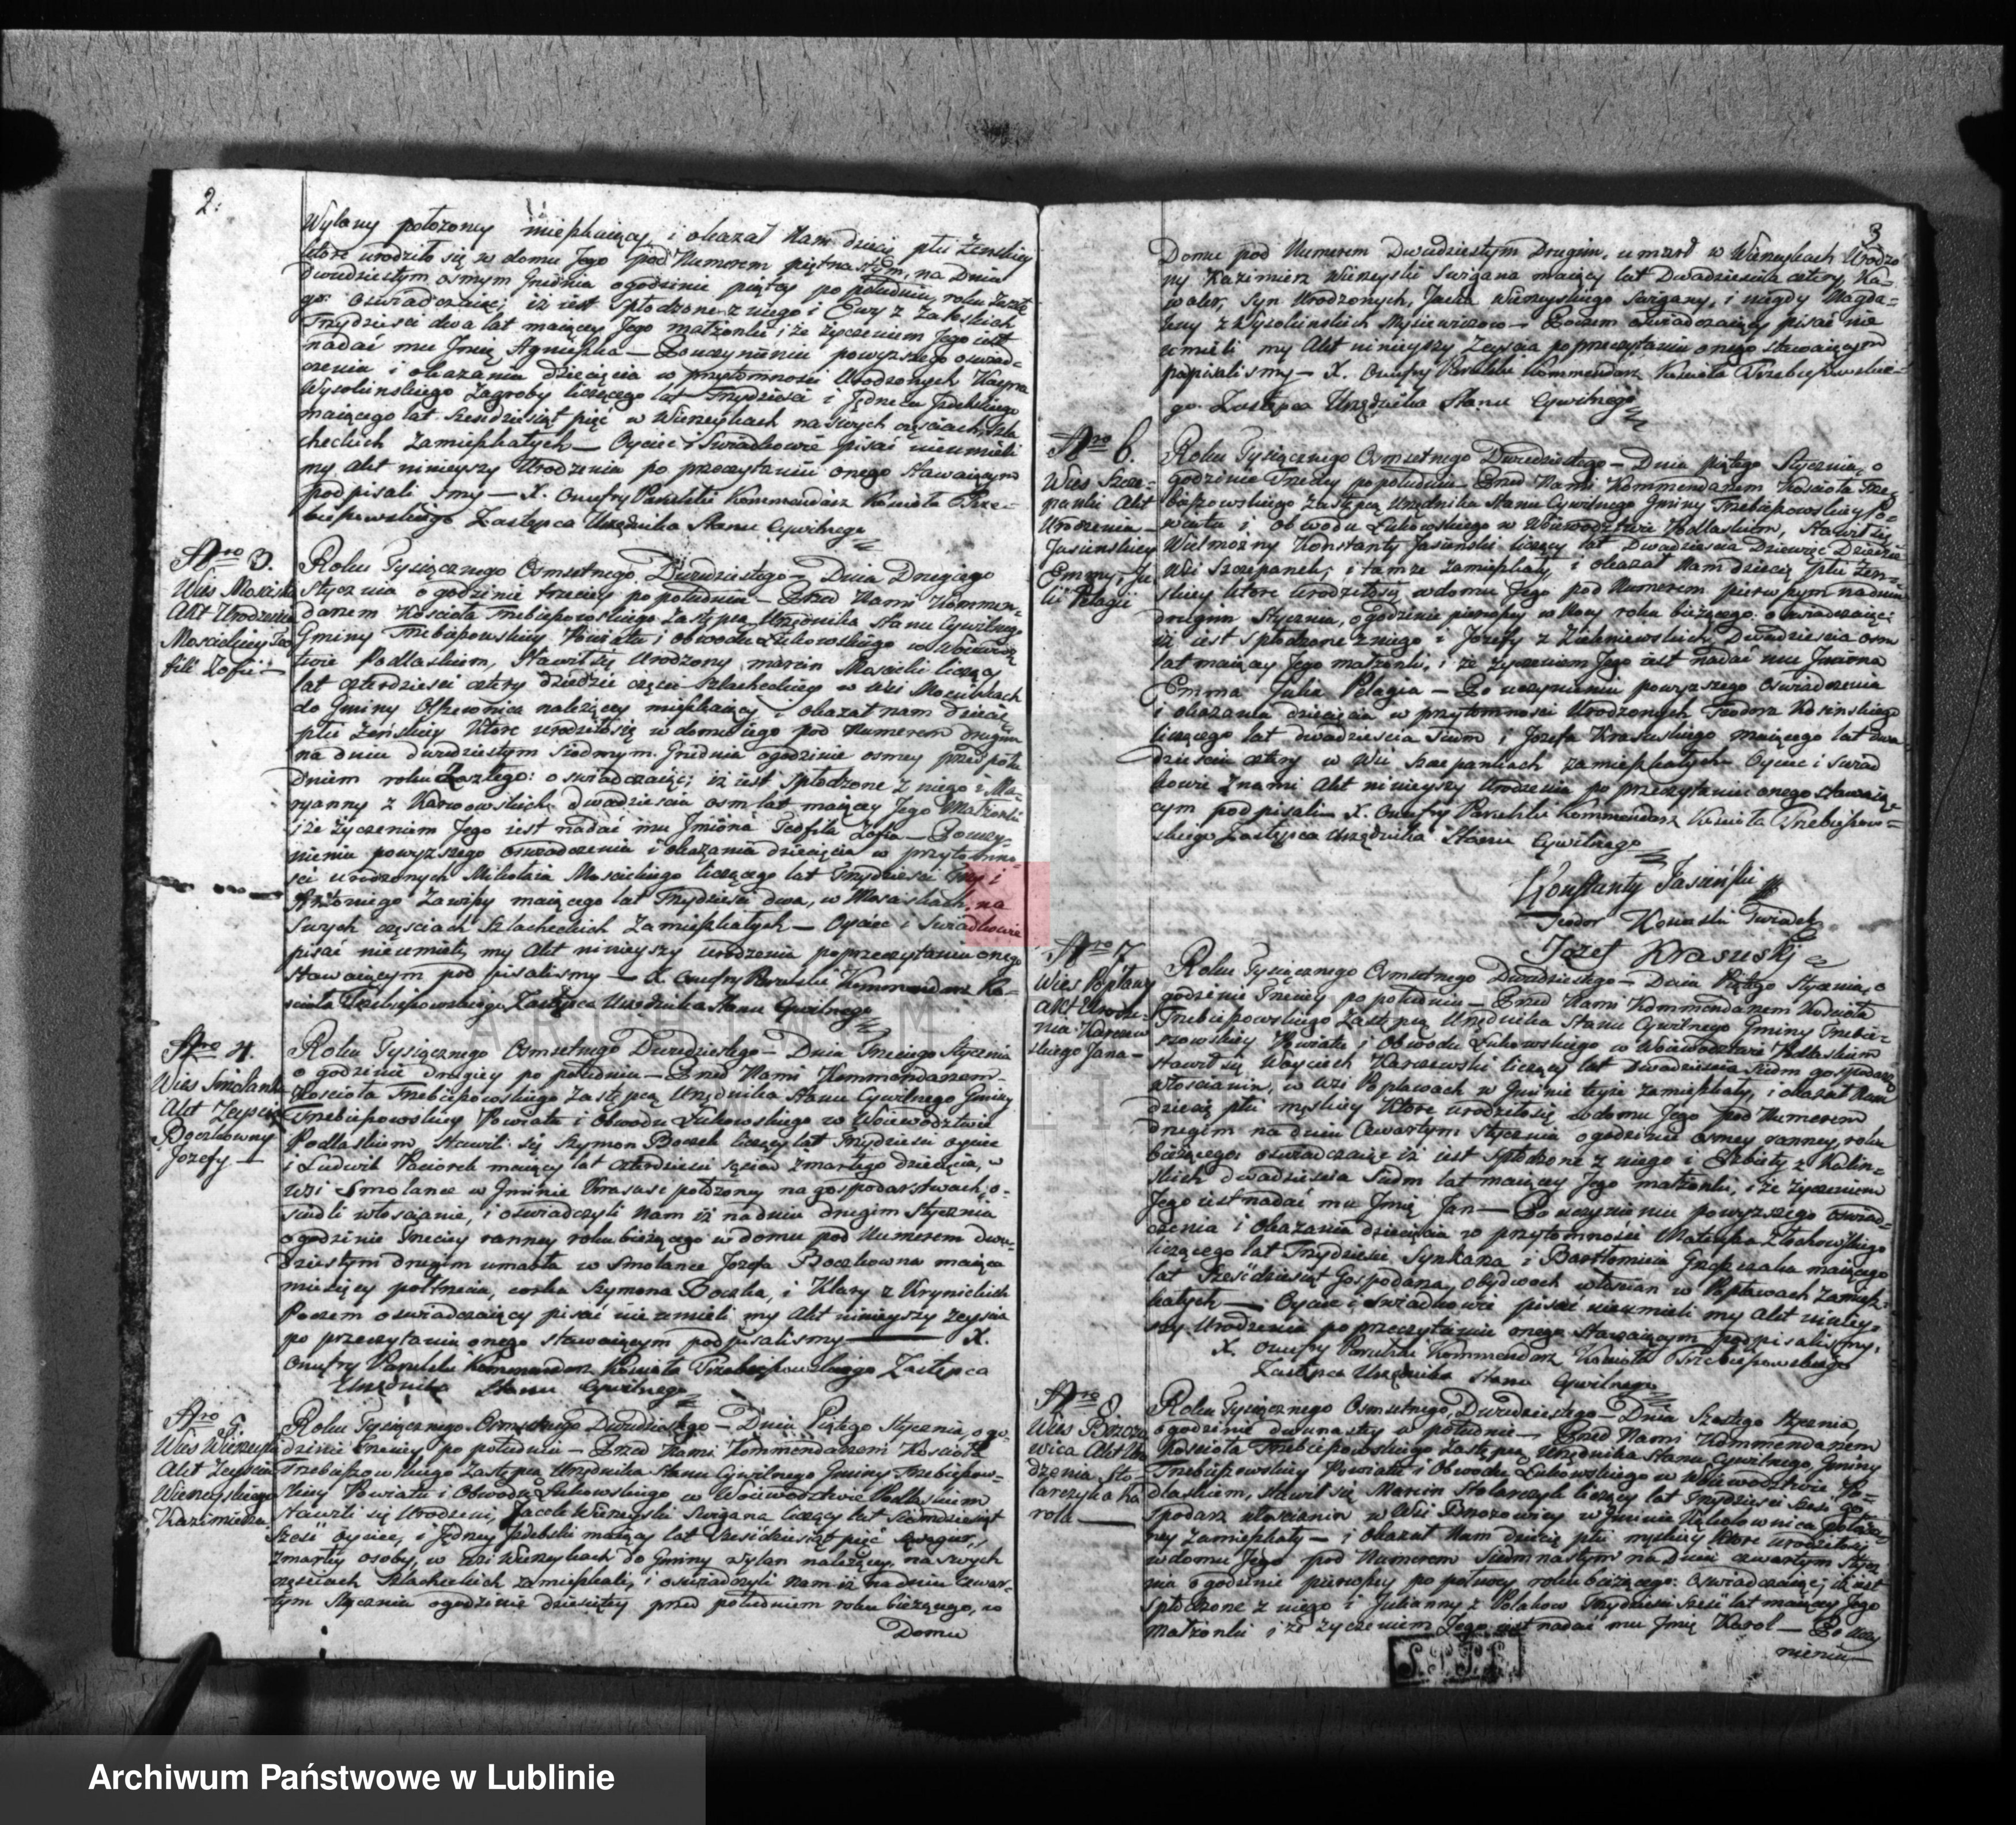 2.
Wylany położony mieszkaiący i okazał Nam dziecię płci żenskiey
które urodziło się w domu Jego pod Numerem piętnastym, na Dniu
dwudziestym osmym Grudnia ogodzinie piątey po południu, roku Zeszłe
go. oswiadczaiąc; iż iest spłodzone z niego i Ewy z Zaleskich
Trzydziesci dwa lat maiącey Jego małżonki i że życzeniem Jego iest
nadać mu Jmię Agnieszka — Po uczynieniu powyższego oswiad-
czenia i okazania dziecięcia w przytomności Urodzonych
Wysokinskiego Zagroby liczącego lat Trzydziesci i Jędrzeia
maiącego lat Szesdziesiąt pięć w Wierzeykach na swych częsciach szla
checkich Zamieszkałych — Oyciec i Swiadkowie pisać nieumieli
my Akt ninieyszy Urodzenia po przeczytaniu onego Stawaiącym
podpisali smy — X. Onufry Kommendarz Koscioła Trze-
bieszowskiego Zastępca Urzędnika Stanu Cywilnego
Nro 3.
Wies Mosciska
Akt Urodzenia
Moscickiey Teo
fili Zofii —
Roku Tysiącznego Osmsetnego Dwudziestego — Dnia Drugiego
Stycznia o godzinie trzeciey po południu — Przed Nami Kommen-
darzem Koscioła Trzebieszowskiego Zastępcą Urzędnika Stanu Cywilnego
Gminy Trzebieszowskiey Powiatu i obwodu Łukowskiego w Woiewodz
twie Podlaskim, Stawił się Urodzony Marcin Moscicki liczący
lat czterdziesci cztery dziedzic częsci Szlacheckiey w wsi Mosciskach
do Gminy Olszewnica należącey mieszkaiący i okazał nam dziecię
płci Żeńskiey które urodziło się w domu iego pod Numerem drugim
na dniu dwudziestym siodmym Grudnia ogodzinie osmey przed połu
dniem roku Zeszłego: oswiadczaiąc; iż iest spłodzone z niego i Ma-
ryanny z Karwowskich dwadziescia osm lat maiącey Jego Małżonki
i że życzeniem Jego iest nadać mu Jmiona Teofila Zofia — Po uczy-
nieniu powyższego oswiadczenia i okazania dziecięcia w przytomno-
ści urodzonych Mikołaia Moscickiego liczącego lat Trzydziesci trzy i
Antoniego Zawiszy maiącego lat Trzydziesci dwa, w Mosciskach, na
Swych częsciach Szlacheckich Zamieszkałych — Oyciec i Swiadkowie
pisać nieumieli, my Akt ninieyszy urodzenia po przeczytaniu onego
Stawaiącym podpisalismy — X. Onufry Kommendarz Ko-
scioła Trzebieszowskiego Zastępca Urzędnika Stanu Cywilnego
Nro 4.
Wies Smolanka
Akt Zeyscia
Boczkowny
Jozefy —
Roku Tysiącznego Osmsetnego Dwudziestego — Dnia Trzeciego Stycznia
o godzinie drugiey po południu — Przed Nami Kommendarzem
Koscioła Trzebieszowskiego Zastępcą Urzędnika Stanu Cywilnego Gminy
Trzebieszowskiey Powiatu i Obwodu Łukowskiego w Woiewodztwie
Podlaskim, Stawił się Szymon Boczek liczący lat Trzydziesci oyciec
i Ludwik Paciorek maiący lat czterdziesci sąsiad zmarłego dziecięcia, w
wsi Smolance w Gminie Krasuse położoney na gospodarstwach, o-
siedli włoscianie, i oswiadczyli Nam iż na dniu drugim Stycznia
ogodzinie Trzeciey ranney roku bieżącego w domu pod Numerem dwu-
dziestym drugim umarła w Smolance Jozefa Boczkowna maiąca
miesięcy połtrzecia, corka Szymona Boczka, i Klary z Krynickich
Poczem oswiadczaiący pisać nie umieli my Akt ninieyszy Zeyscia
po przeczytaniu onego stawaiącym podpisalismy — X.
Onufry Kommendarz Koscioła Trzebieszowskiego Zastępca
Urzędnika Stanu Cywilnego
Nro 5.
Wies Wierzeyki
Akt Zeyscia
Wierzeyskiego
Kazimierza
Roku Tysiącznego Osmsetnego Dwudziestego — Dnia Piątego Stycznia, o go-
dzinie trzeciey po południu — Przed Nami Kommendarzem Koscioła
Trzebieszowskiego Zastępcą Urzędnika Stanu Cywilnego Gminy Trzebieszow-
skiey Powiatu i Obwodu Łukowskiego w Woiewodztwie Podlaskim
stawili się Urodzeni, Jacek Wierzeyski Surgana liczący lat Siedmdziesiąt
Szesc oyciec, i Jędrzey maiący lat Szescdziesiąt pięc Szwagier,
zmarłey osoby, w wsi Wierzeykach do Gminy Wylan należącey, na swych
częsciach Szlacheckich zamieszkali, i oswiadczyli Nam iż na dniu czwar-
tym Stycznia ogodzinie dziesiątey przed południem roku bieżącego, w
Domu
3
Domu pod Numerem Dwudziestym Drugim, umarł w Wierzeykach Urodzo
ny Kazimierz Wierzeyski Surgana maiący lat Dwadziescia cztery, Ka-
waler, Syn Urodzonych, Jacka Wierzeyskiego Surgany, i niegdy Magda-
leny z Wysokinskich — Poczem oswiadczaiący pisać nie
umieli my Akt ninieyszy Zeyscia po przeczytaniu onego stawaiącym
podpisalismy — X. Onufry Kommendarz Koscioła Trzebieszowskie-
go Zastępca Urzędnika Stanu Cywilnego
Nro 6.
Wies Szcze-
panki Akt
Urodzenia —
Jasinskiey
Emmy, Ju
lii Pelagii
Roku Tysiącznego Osmsetnego Dwudziestego — Dnia piątego Stycznia, o
godzinie Trzeciey po południu — Przed Nami Kommendarzem Koscioła Trze
bieszowskiego Zastępcą Urzędnika Stanu Cywilnego Gminy Trzebieszowskiey Po-
wiatu i Obwodu Łukowskiego w Woiewodztwie Podlaskim, stawił się
Wielmożny Konstanty Jasinski liczący lat Dwadziescia Dziewięć Dziedzic
Wsi Szczepanek, i tamże zamieszkały i okazał Nam dziecię płci żen-
skiey które urodziło się w domu Jego pod Numerem pierwszym na dniu
drugim Stycznia, ogodzinie pierwszey w Nocy roku bieżącego. oswiadczaiąc;
iż iest spłodzone z niego i Jozefy z Dwadziescia osm
lat maiącey Jego małżonki, i że życzeniem Jego iest nadać mu Jmiona
Emma Julia Pelagia — Po uczynieniu powyższego Oswiadczenia
i okazania dziecięcia w przytomności Urodzonych Teodora
liczącego lat dwadziescia siedm i Jozefa Krasuskiego maiącego lat dwa
dziescia cztery w Wsi Szczepankach zamieszkałych Oyciec i Swiad
kowie z nami Akt ninieyszy Urodzenia po przeczytaniu onego stawaią-
cym podpisali — X. Onufry Kommendarz Koscioła Trzebieszow-
skiego Zastępca Urzędnika Stanu Cywilnego
Konstanty Jasiński
Teodor Swiadek
Jozef Krasuski
Nro 7.
Wies Popławy
Akt Urodze-
nia Karczew
skiego Jana —
Roku Tysiącznego Osmsetnego Dwudziestego — Dnia Piątego Stycznia, o
godzinie Trzeciey po południu — Przed Nami Kommendarzem Koscioła
Trzebieszowskiego Zastępcą Urzędnika Stanu Cywilnego Gminy Trzebie-
szowskiey Powiatu i Obwodu Łukowskiego w Woiewodztwie Podlaskim
stawił się Woyciech Karczewski liczący lat Dwadziescia Siedm gospodarz
włoscianin, w wsi Popławach w Gminie teyże zamieszkały, i okazał Nam
dziecię płci męskiey które urodziło się w domu Jego pod Numerem
drugim na dniu Czwartym Stycznia ogodzinie osmey ranney, roku
bieżącego: oswiadczaiąc iż iest spłodzone z niego i Elżbiety z Kalin-
skich dwadziescia Siedm lat maiącey Jego małżonki, i że życzeniem
Jego iest nadać mu Jmię Jan — Po uczynieniu powyższego oswiad-
czenia i okazania dziecięcia w przytomności Mateusza
liczącego lat Trzydziesci i Bartłomieia maiącego
lat Szescdziesiąt Gospodarza, obydwoch włoscian w Popławach Zamiesz-
kałych — Oyciec i Swiadkowie pisać nieumieli my Akt niniey-
szy Urodzenia po przeczytaniu onego Stawaiącym podpisalismy,
X. Onufry Kommendarz Koscioła Trzebieszowskiego
Zastępca Urzędnika Stanu Cywilnego
Nro 8.
Wies Brzozo
wica Akt Uro
dzenia Sto-
larczyka Ka
rola —
Roku Tysiącznego Osmsetnego, Dwudziestego — Dnia Szostego Stycznia,
ogodzinie dwunastey w południe — Przed Nami Kommendarzem
Koscioła Trzebieszowskiego Zastępcą Urzędnika Stanu Cywilnego, Gminy
Trzebieszowskiey Powiatu i Obwodu Łukowskiego w Woiewodztwie Po-
dlaskim, stawił się Marcin Stolarczyk liczący lat Trzydziesci Szesc go-
spodarz włoscianin w Wsi Brzozowicy w Gminie Kąkolownica położo-
ney Zamieszkały — i okazał Nam dziecię płci męskiey które urodziło się
w domu Jego pod Numerem Siedmnastym na Dniu czwartym Stycz
nia ogodzinie pierwszey po połnocy roku bieżącego: oswiadczaiąc; iż iest
spłodzone z niego i Julianny z Polakow Trzydziesci Szesc lat maiącey Jego
Małżonki i że życzeniem Jego iest nadać mu Jmię Karol — Po uczy
nieniu —
ARCHIWUM
W LUBLINIE
Archiwum Państwowe w Lublinie